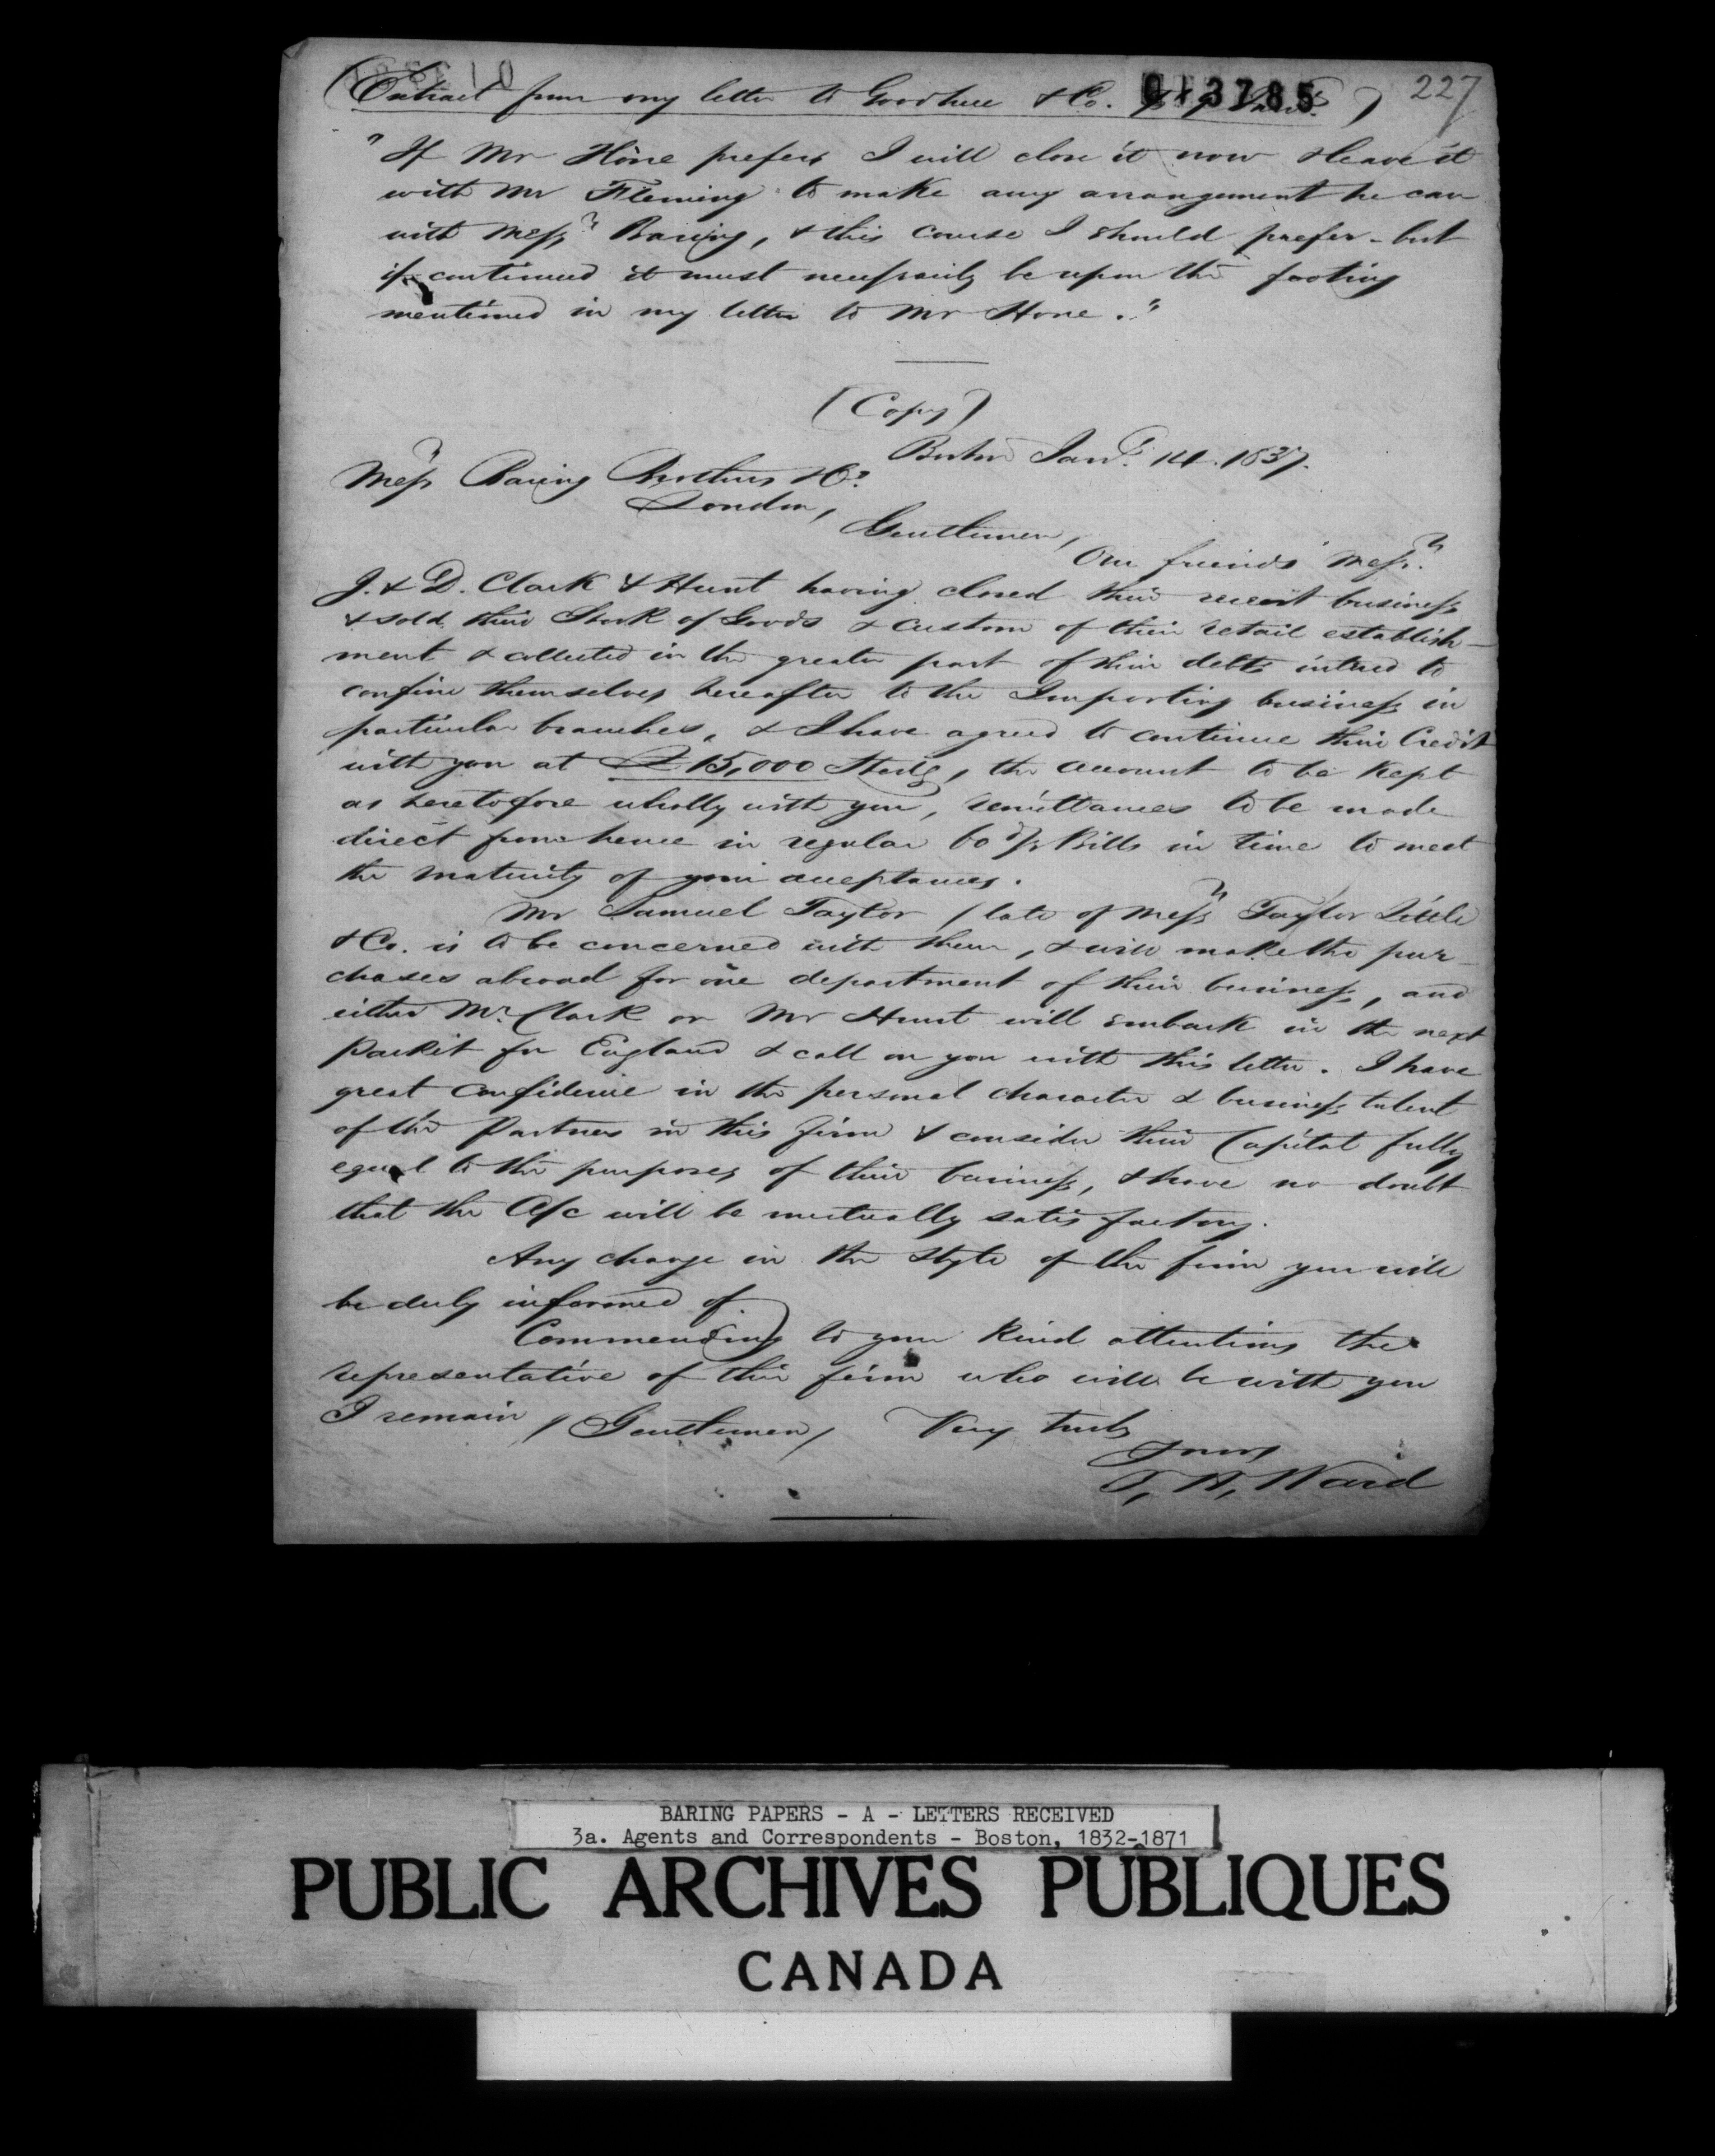 013785
227
(Extract from my letter to Goodhue & Co. Jany.)
"If Mr Hone prefers I will close it now & leave it
with Mr Fleming to make any arrangement he can
with Messrs Baring, & this course I should prefer - but
if continued it must necessarily be upon the footing
mentioned in my letter to Mr Hone."
(Copy)
Boston Jany. 14. 1837.
Messrs Baring Brothers & Co.
London,
Gentlemen,
Our friends Messrs.
J. & D. Clark & Hunt having closed their recent business
& sold their Stock of Goods & custom of their retail establish-
ment & collected in the greater part of their debts intend to
confine themselves hereafter to the Importing business in
particular branches, & I have agreed to continue their Credit
with you at £15,000 Sterlg, the account to be kept
as heretofore wholly with you, remittances to be made
direct from hence in regular 60 d/s Bills in time to meet
the maturity of your acceptances.
Mr Samuel Taylor / late of Messrs Taylor Little
& Co. is to be concerned with them, & will make the pur-
chases abroad for one department of their business, and
either Mr. Clark or Mr Hunt will embark in the next
packet for England & call on you with this letter. I have
great confidence in the personal character & business talent
of the Partners in this firm & consider their Capital fully
equal to the purposes of their business, & have no doubt
that the A/c will be mutually satisfactory.
Any change in the style of the firm you will
be duly informed of.
Commending to your kind attentions the
representative of this firm who will be with you
I remain, Gentlemen, Very truly
Yours
T. W. Ward
BARING PAPERS - A - LETTERS RECEIVED
3a. Agents and Correspondents - Boston, 1832-1871
PUBLIC ARCHIVES PUBLIQUES
CANADA